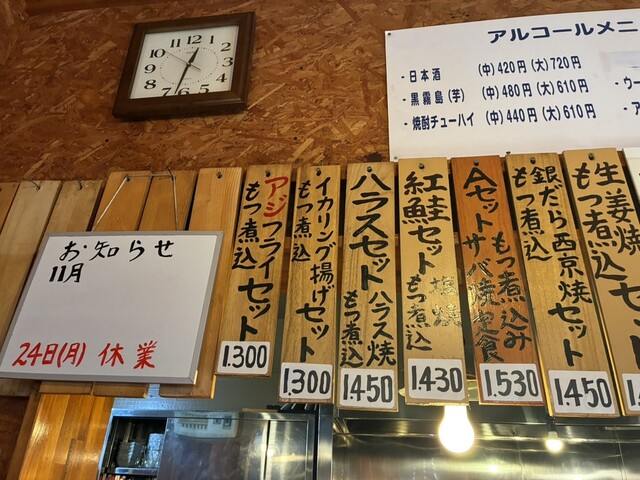 アルコールメニ
・日本酒 (中)420円(大)720円
・黒霧島(芋) (中)480円(大)610円
・焼酎チューハイ (中)440円(大)610円
・ウー
お知らせ
11月
24日(月) 休業
12
1
2
3
4
5
6
7
8
9
10
11
アジフライセット
もつ煮込
1.300
イカリング揚げセット
もつ煮込
1.300
ハラスセット
ハラス焼
もつ煮込
1.450
紅鮭セット
塩焼
もつ煮込
1.430
Aセット
サバ焼定食
もつ煮込み
1.530
銀だら西京焼セット
もつ煮込
1450
生姜焼
もつ煮込